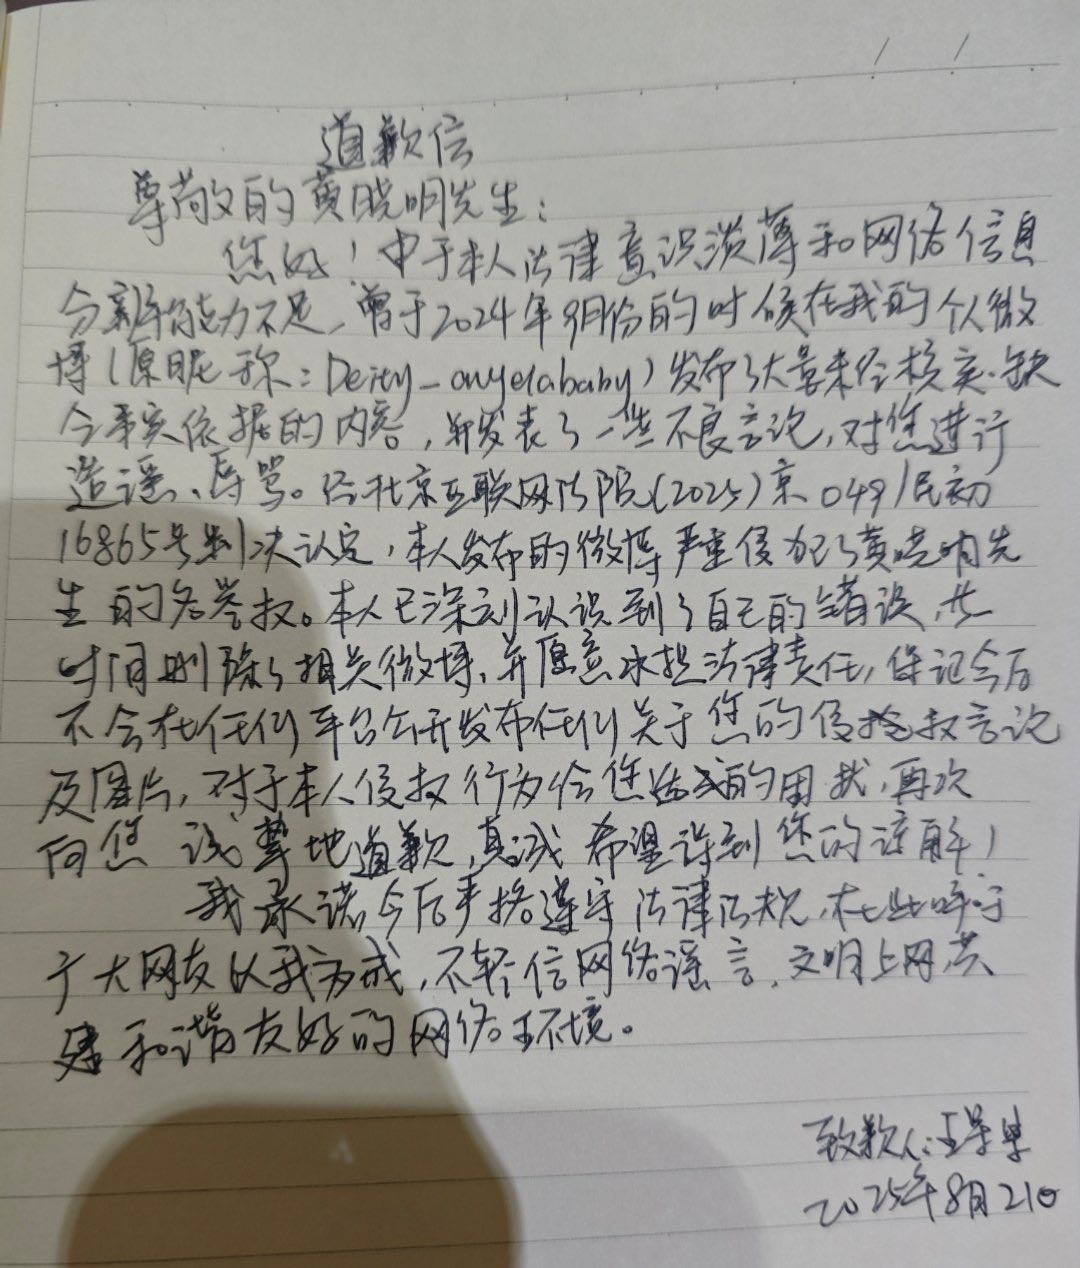 道歉信
尊敬的黄晓明先生：
您好！由于本人法律意识淡薄和网络信息
分辨能力不足，曾于2024年9月份的时候在我的个人微
博（原昵称：Deity_angelababy）发布了大量未经核实、缺
乏事实依据的内容，并发表了一些不良言论，对您进行
造谣、辱骂。经北京互联网法院（2025）京0491民初
16865号判决认定，本人发布的微博严重侵犯了黄晓明先
生的名誉权。本人已深刻认识到了自己的错误，
时间删除了相关微博，并愿意承担法律责任，保证今后
不会在任何平台公开发布任何关于您的侵权言论
及图片，对于本人侵权行为给您造成的困扰，再次
向您诚挚地道歉，真诚希望得到您的谅解！
我承诺今后严格遵守法律法规，在此呼吁
广大网友以我为戒，不轻信网络谣言，文明上网，共
建和谐友好的网络环境。
致歉人：王
2025年8月21日